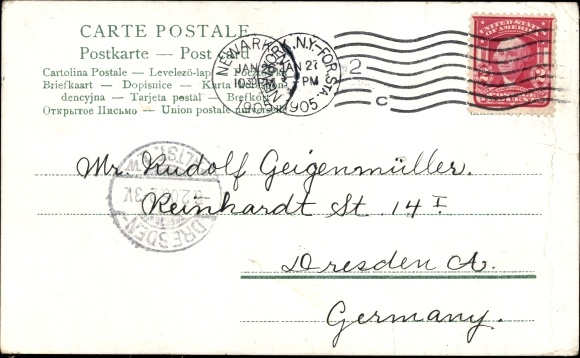 CARTE POSTALE
Postkarte — Post card
Cartolina Postale — Levelező-lap
Briefkaart — Dopisnice — Karta
dencyjna — Tarjeta postal — Brefkort
Открытое Письмо — Union postale universelle
NEWARK, N.J.
JAN 26
1905
NEW YORK, N.Y.-FOR. STA.
JAN 27
PM
1905
2
C
UNITED STATES
OF AMERICA
Mr. Rudolf Geigenmüller.
Reinhardt St. 14 I
Dresden A.
Germany.
DRESDEN-
ALTST.